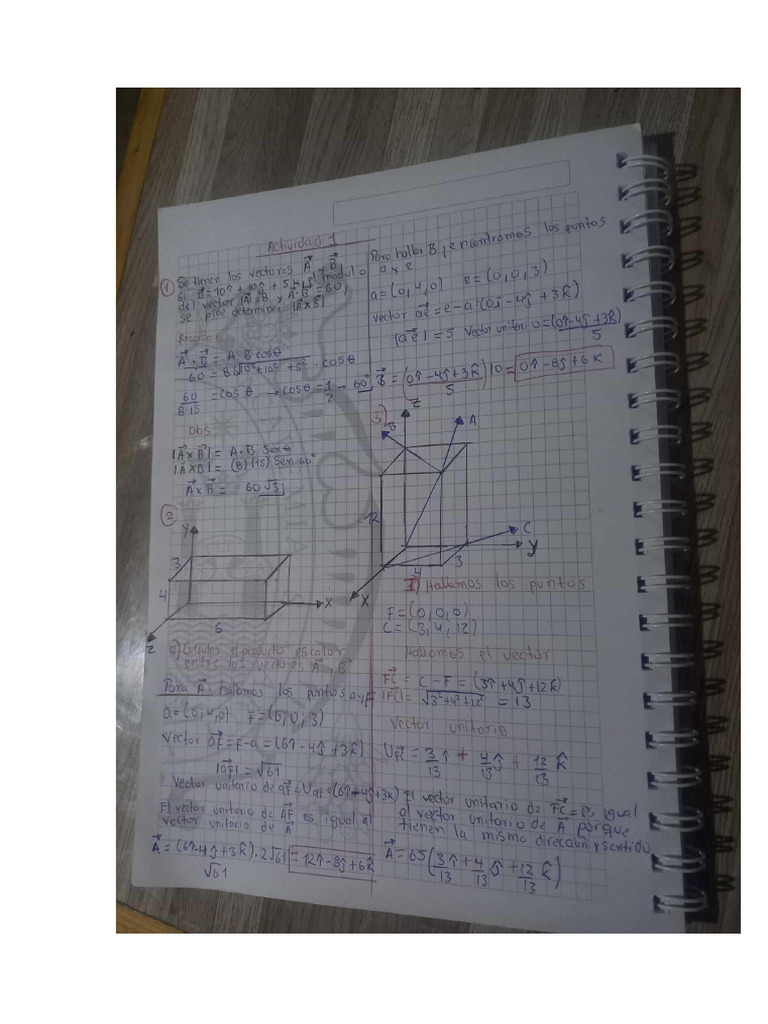 Actividad 1
① Se tienen los vectores A⃗ y B⃗
si B⃗ = 10î + 10ĵ + 5k̂, el modulo
del vector |A⃗| = 8 y A⃗·B⃗ = 60,
se pide determinar |A⃗xB⃗|
A⃗·B⃗ = A B cosθ
60 = 8√10²+10²+5² · cosθ
60/8·15 = cos θ → cosθ = 1/2 → 60°
Obs
|A⃗xB⃗| = A·B Senθ
|A⃗xB⃗| = (8)(15) Sen 60°
A⃗xB⃗ = 60√3
②
Y
3
4
X
6
Z
a) Calcular el producto escalar
entre los vectores A⃗ y B⃗
Para A⃗ hallamos los puntos a y F
a = (0,4,0) F = (6,0,3)
Vector aF⃗ = F-a = (6î - 4ĵ + 3k̂)
|aF⃗| = √61
Vector unitario de aF⃗ = Uaf = (6î-4ĵ+3k)
El vector unitario de AF⃗ es igual al
vector unitario de A⃗
A⃗ = (6î-4ĵ+3k̂)·2√61 = 12î - 8ĵ + 6k̂
√61
Para hallar B, encontramos los puntos
a y e
a = (0,4,0) e = (0,0,3)
vector ae⃗ = e-a (0î - 4ĵ + 3k̂)
|ae⃗| = 5 Vector unitario = (0î-4ĵ+3k̂)/5
B⃗ = (0î - 4ĵ + 3k̂)/5 10 = 0î - 8ĵ + 6k
3)
Z
B
A
12
C
Y
3
4
X
Hallamos los puntos
F = (0,0,0)
C = (3,4,12)
Hallamos el vector
FC⃗ = C - F = (3î+4ĵ+12k̂)
|FC| = √3²+4²+12² = 13
Vector unitario
UFC⃗ = 3/13 î + 4/13 ĵ + 12/13 k̂
El vector unitario de FC⃗ = es igual
al vector unitario de A⃗ porque
tienen la misma dirección y sentido
A⃗ = 65(3/13 î + 4/13 ĵ + 12/13 k̂)